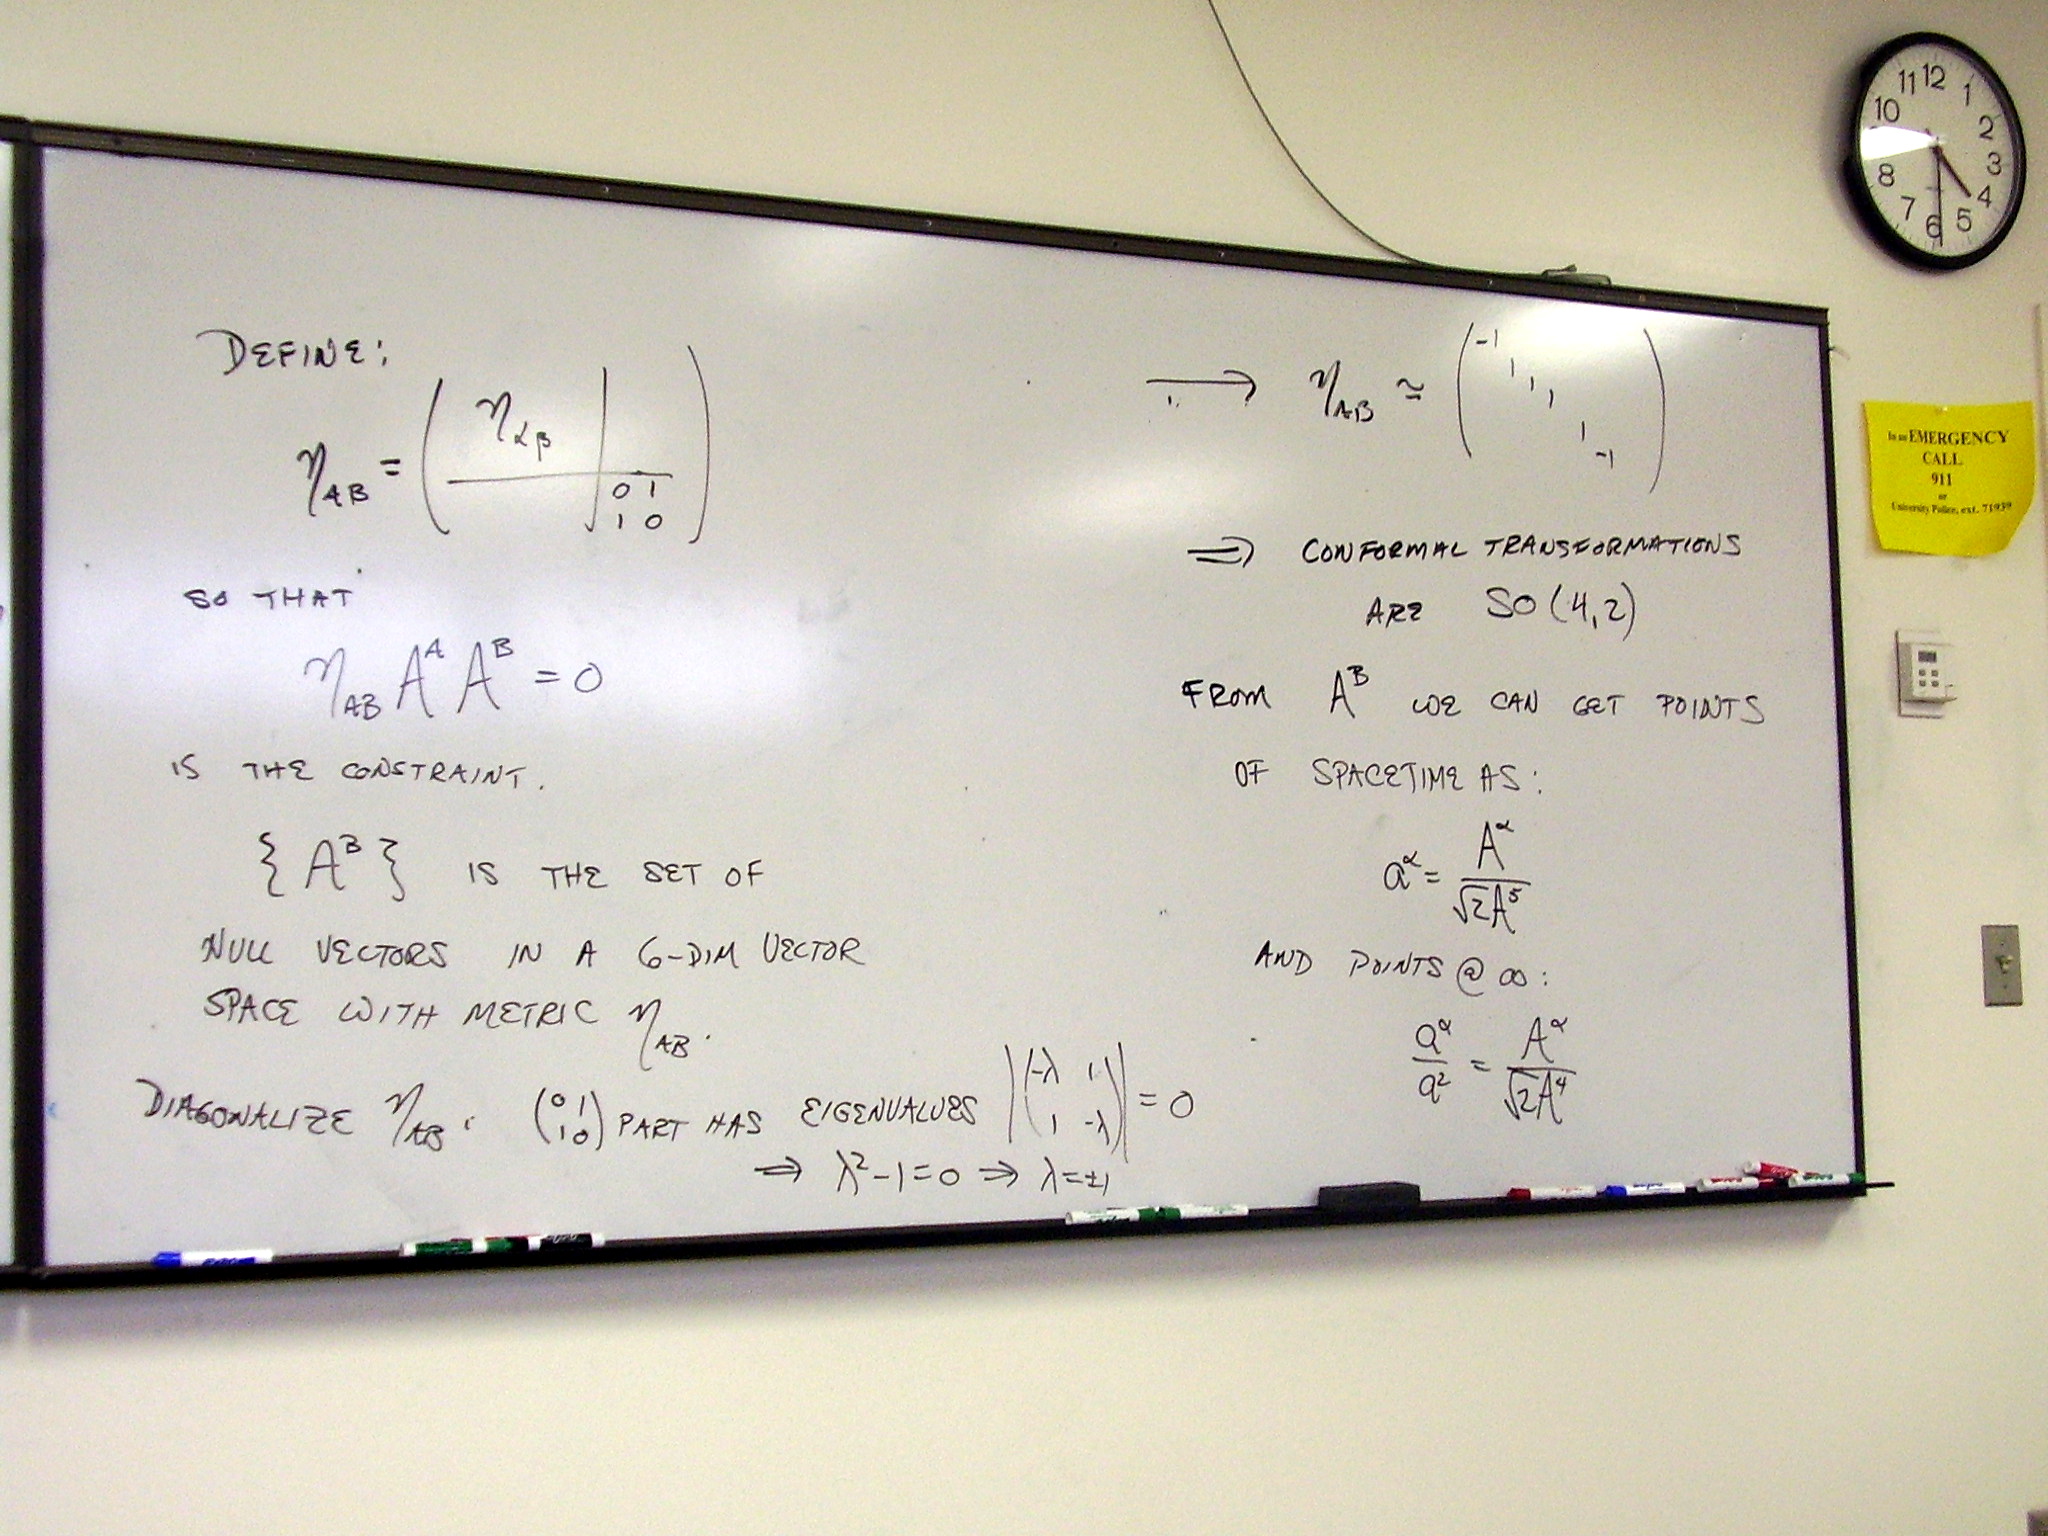 DEFINE:
η_AB = ( η_αβ | 0 1 1 0 )
SO THAT
η_AB A^A A^B = 0
IS THE CONSTRAINT.
{ A^B } IS THE SET OF
NULL VECTORS IN A 6-DIM VECTOR
SPACE WITH METRIC η_AB.
DIAGONALIZE η_AB: (0 1 1 0) PART HAS EIGENVALUES |(-λ 1 1 -λ)| = 0
⇒ λ²-1=0 ⇒ λ=±1
→ η_AB ≃ ( -1 1 1 1 1 -1 )
⇒ CONFORMAL TRANSFORMATIONS
ARE SO(4,2)
FROM A^B WE CAN GET POINTS
OF SPACETIME AS:
a^α = A^α / √2A^5
AND POINTS @ ∞:
a^α / a² = A^α / √2A^4
11 12 1
10 2
3
8 4
7 6 5
In an EMERGENCY
CALL
911
or
University Police, ext. 71939